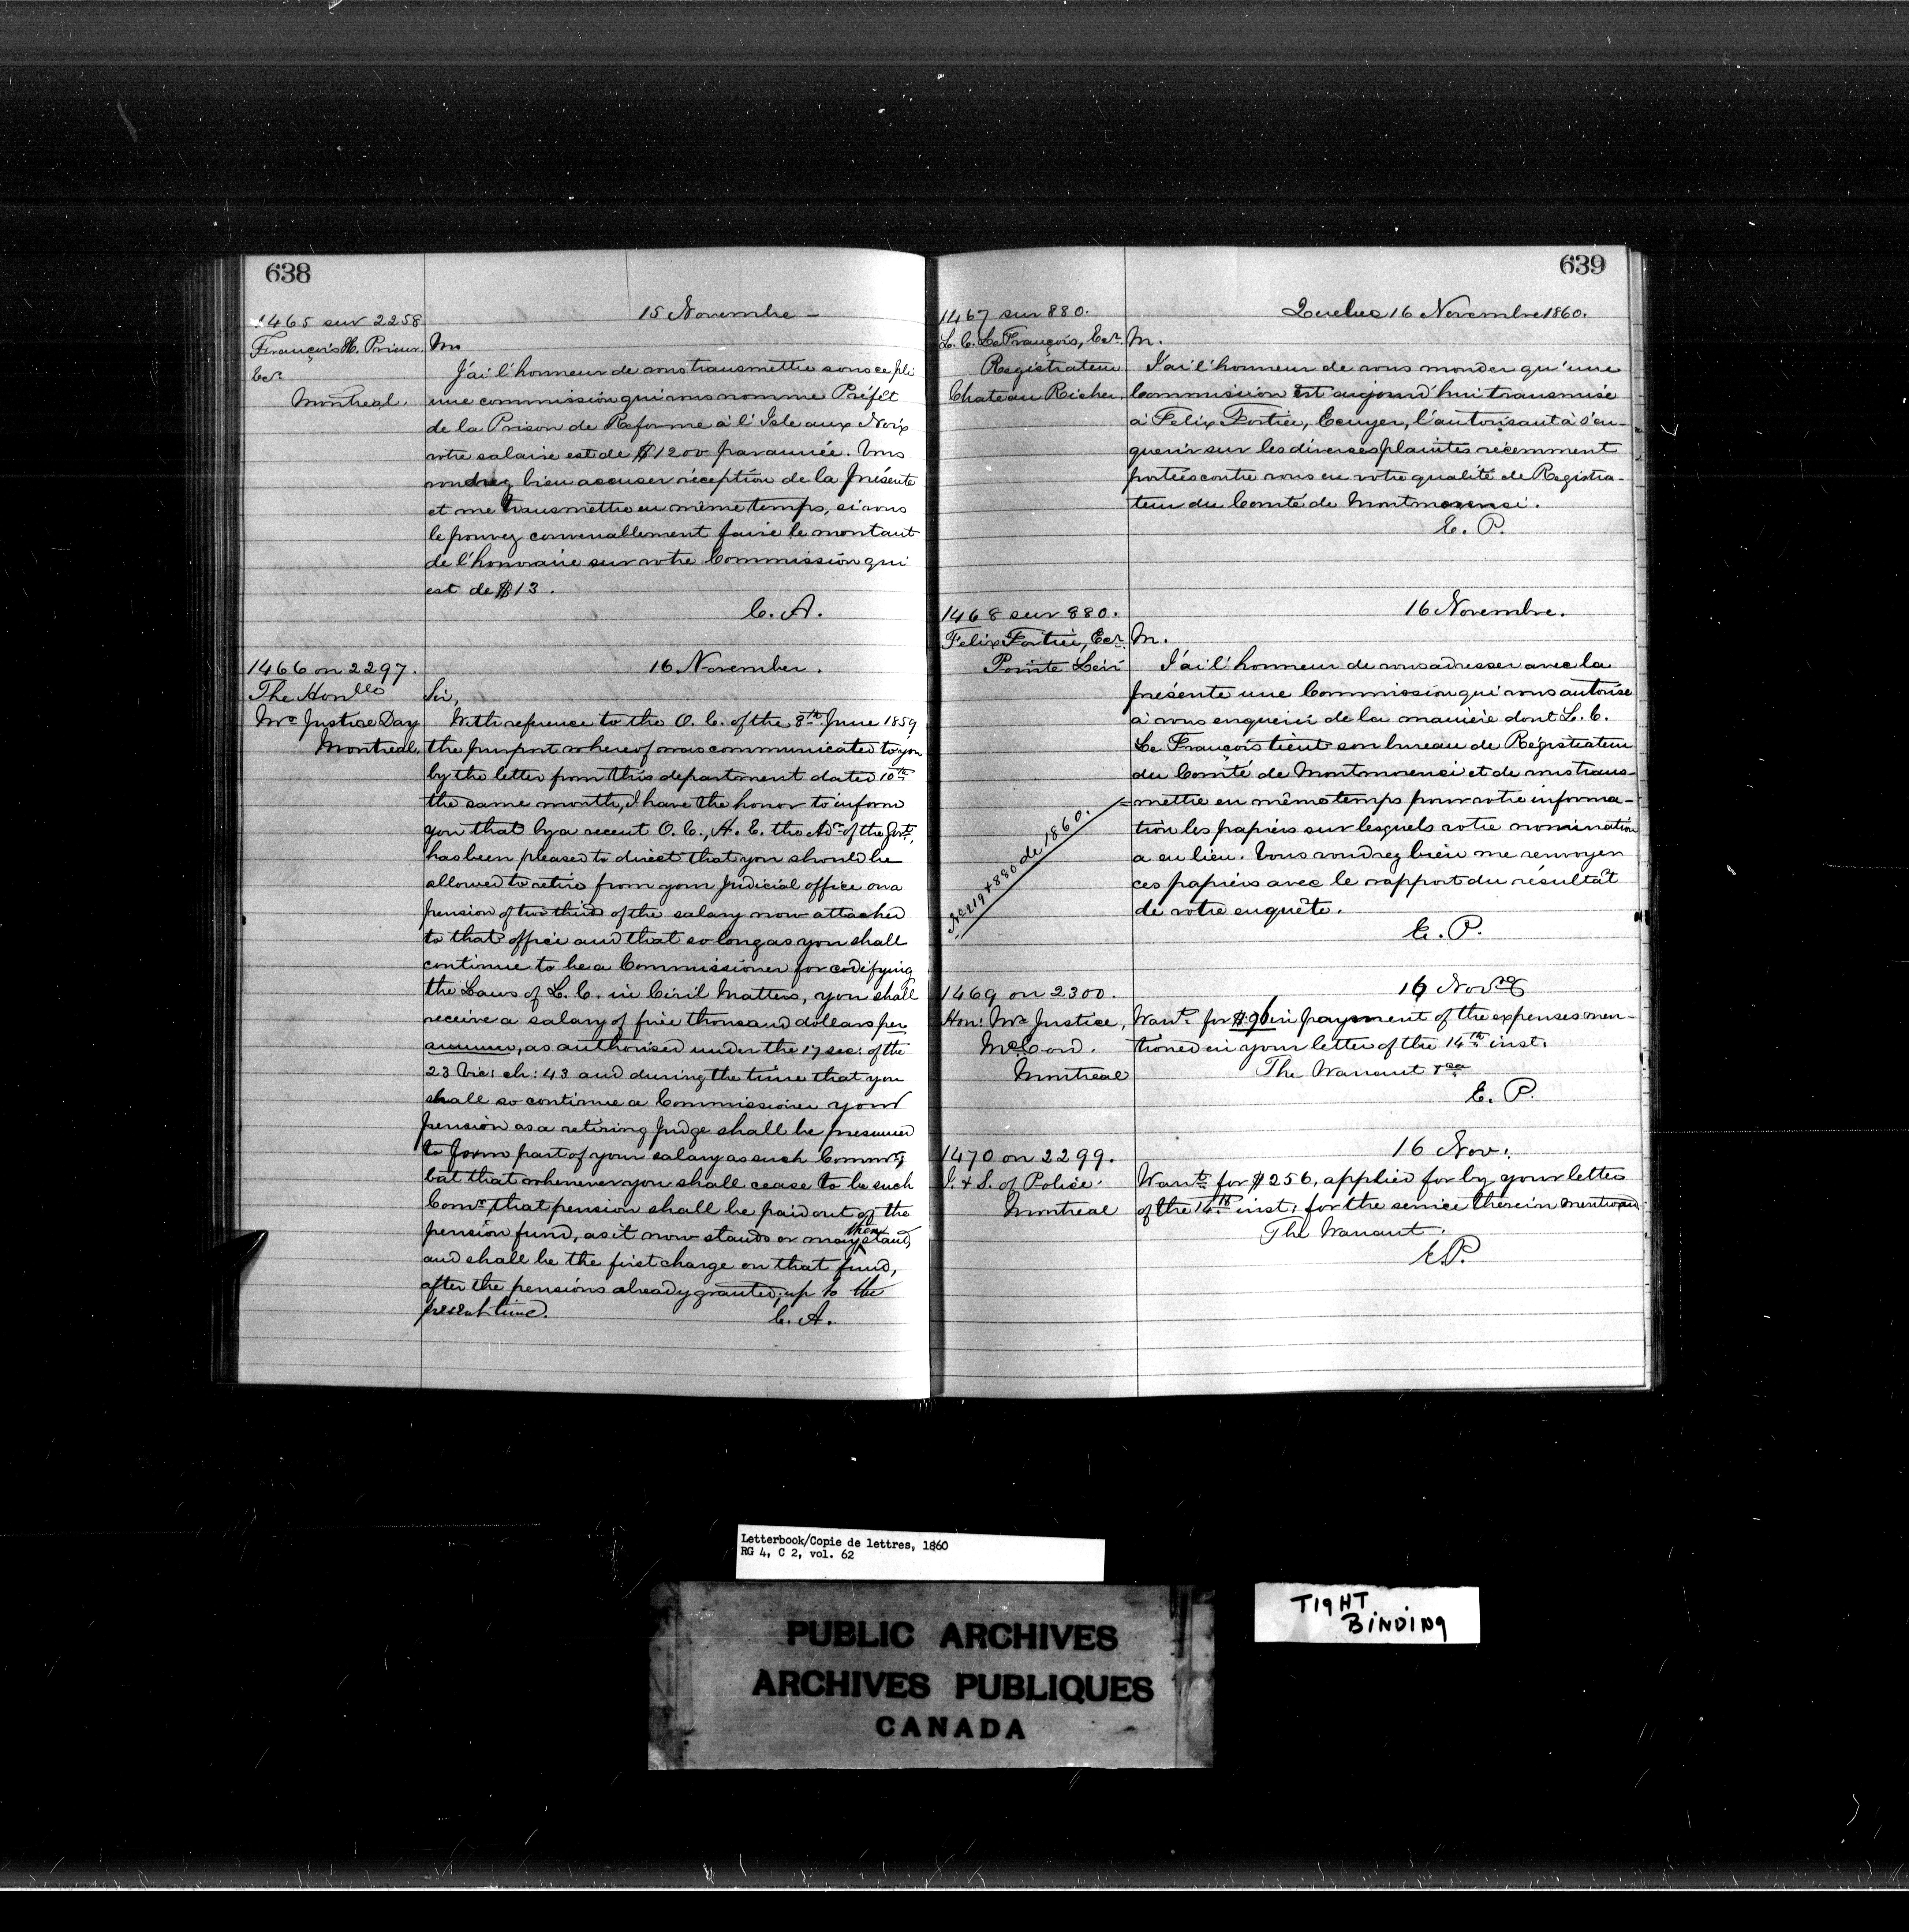 638
15 Novembre
1465 sur 2258
François X. Prieur,
Ecr.
Montreal.
Mr
J'ai l'honneur de vous transmettre sous ce pli
une commission qui vous nomme Préfet
de la Prison de Reforme à l'Isle aux Noix
votre salaire est de $1200 par année. Vous
voudrez bien accuser réception de la présente
et me transmettre en même temps, si vous
le pouvez convenablement faire le montant
de l'honoraire sur votre Commission qui
est de $13.
C. A.
1466 on 2297.
The Honble
Mr Justice Day
Montreal,
16 November.
Sir,
With reference to the O. C. of the 8th June 1859
the purport whereof was communicated to you
by the letter from this department dated 10th
the same month, I have the honor to inform
you that by a recent O. C., H. E. the Adr of the Govt,
has been pleased to direct that you should be
allowed to retire from your Judicial office on a
pension of two thirds of the salary now attached
to that office and that so long as you shall
continue to be a Commissioner for codifying
the Laws of L. C. in Civil Matters, you shall
receive a salary of five thousand dollars per
annum, as authorised under the 17 sec: of the
23 Vic: ch: 43 and during the time that you
shall so continue a Commissioner your
pension as a retiring Judge shall be presumed
to form part of your salary as such Commr,
but that whenever you shall cease to be such
Comr that pension shall be paid out of the
pension fund, as it now stands or may then stand,
and shall be the first charge on that fund,
after the pensions already granted, up to the
present time.
C. A.
639
Quebec 16 Novembre 1860.
1467 sur 880.
L. C. LeFrançois, Ecr.
Registrateur
Chateau Richer,
M.
J'ai l'honneur de vous mander qu'une
Commission est aujourd'hui transmise
à Felix Fortier, Ecuyer, l'autorisant à s'en-
querir sur les diverses plaintes récemment
portées contre vous en votre qualité de Registra-
teur du Comté de Montmorenci.
E. P.
1468 sur 880.
Felix Fortier, Ecr
Pointe Levi
16 Novembre.
M.
J'ai l'honneur de vous adresser avec la
présente une Commission qui vous autorise
à vous enquérir de la manière dont L. C.
Le François tient son bureau de Régistrateur
du Comté de Montmorenci et de vous trans-
mettre en même temps pour votre informa-
tion les papiers sur lesquels votre nomination
a eu lieu. Vous voudrez bien me renvoyer
ces papiers avec le rapport du résultat
de votre enquête.
E. P.
No 219 & 880 de 1860.
1469 on 2300.
Hon: Mr Justice,
McCord.
Montreal
16 Nov
Warrt for $96 in payment of the expenses men-
tioned in your letter of the 14th inst.
The Warrant &ca
E. P.
1470 on 2299.
I. & S. of Police.
Montreal
16 Nov.
Warrt for $256, applied for by your letter
of the 14th inst. for the service therein mentioned
The Warrant.
E.P.
Letterbook/Copie de lettres, 1860
RG 4, C 2, vol. 62
PUBLIC ARCHIVES
ARCHIVES PUBLIQUES
CANADA
TIGHT
BINDING